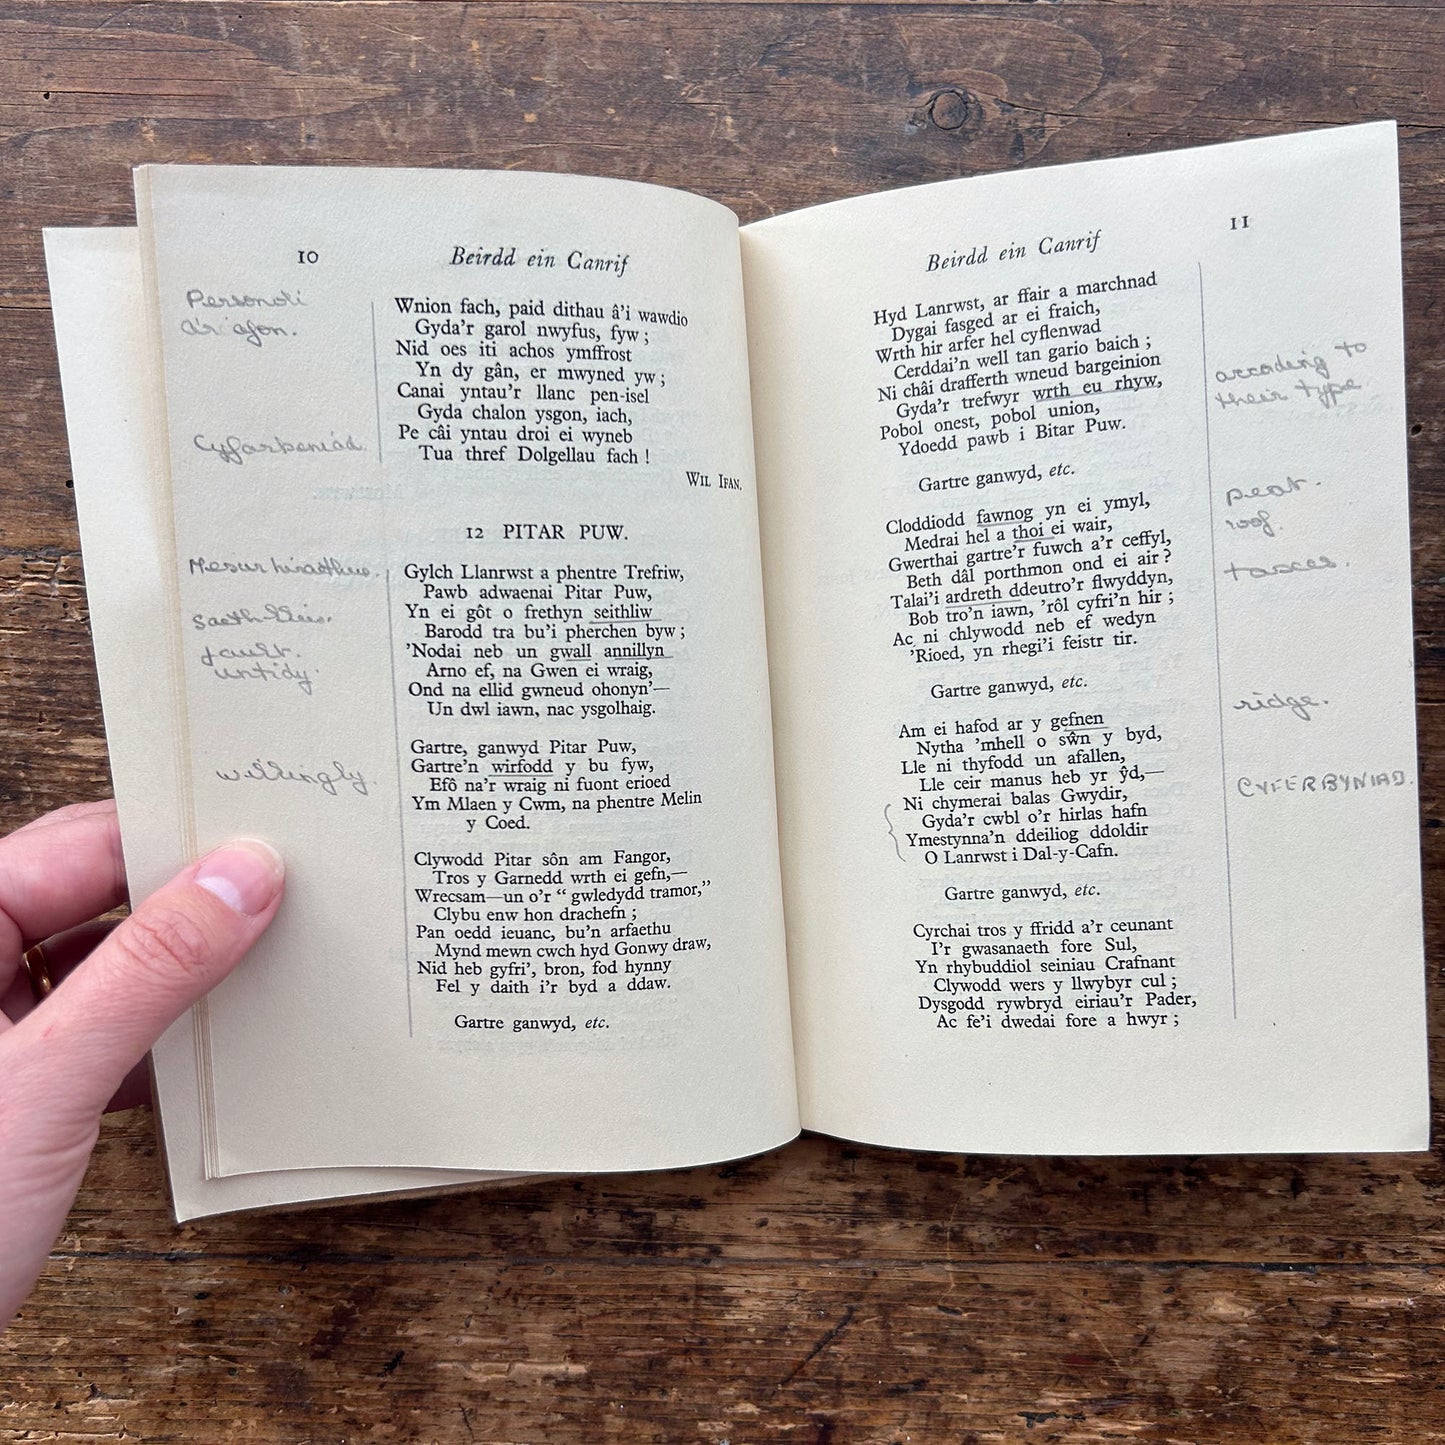 10
Beirdd ein Canrif
Personoli
a'r afon.
Wnion fach, paid dithau â'i wawdio
Gyda'r garol nwyfus, fyw ;
Nid oes iti achos ymffrost
Yn dy gân, er mwyned yw ;
Canai yntau'r llanc pen-isel
Gyda chalon ysgon, iach,
Cyfarbeniad.
Pe câi yntau droi ei wyneb
Tua thref Dolgellau fach !
WIL IFAN.
12 PITAR PUW.
Mesur
Gylch Llanrwst a phentre Trefriw,
Pawb adwaenai Pitar Puw,
saeth-lliw.
Yn ei gôt o frethyn seithliw
Barodd tra bu'i pherchen byw ;
fault.
untidy.
'Nodai neb un gwall annillyn
Arno ef, na Gwen ei wraig,
Ond na ellid gwneud ohonyn'—
Un dwl iawn, nac ysgolhaig.
Gartre, ganwyd Pitar Puw,
willingly.
Gartre'n wirfodd y bu fyw,
Efô na'r wraig ni fuont erioed
Ym Mlaen y Cwm, na phentre Melin
y Coed.
Clywodd Pitar sôn am Fangor,
Tros y Garnedd wrth ei gefn,—
Wrecsam—un o'r “ gwledydd tramor,”
Clybu enw hon drachefn ;
Pan oedd ieuanc, bu'n arfaethu
Mynd mewn cwch hyd Gonwy draw,
Nid heb gyfri', bron, fod hynny
Fel y daith i'r byd a ddaw.
Gartre ganwyd, etc.
Beirdd ein Canrif
11
Hyd Lanrwst, ar ffair a marchnad
Dygai fasged ar ei fraich,
Wrth hir arfer hel cyflenwad
Cerddai'n well tan gario baich ;
Ni châi drafferth wneud bargeinion
Gyda'r trefwyr wrth eu rhyw,
according to
their type
Pobol onest, pobol union,
Ydoedd pawb i Bitar Puw.
Gartre ganwyd, etc.
Cloddiodd fawnog yn ei ymyl,
peat.
Medrai hel a thoi ei wair,
roof.
Gwerthai gartre'r fuwch a'r ceffyl,
Beth dâl porthmon ond ei air ?
Talai'i ardreth ddeutro'r flwyddyn,
taxes.
Bob tro'n iawn, 'rôl cyfri'n hir ;
Ac ni chlywodd neb ef wedyn
'Rioed, yn rhegi'i feistr tir.
Gartre ganwyd, etc.
Am ei hafod ar y gefnen
ridge.
Nytha 'mhell o sŵn y byd,
Lle ni thyfodd un afallen,
Lle ceir manus heb yr ŷd,—
Ni chymerai balas Gwydir,
CYFERBYNIAD.
Gyda'r cwbl o'r hirlas hafn
Ymestynna'n ddeiliog ddoldir
O Lanrwst i Dal-y-Cafn.
Gartre ganwyd, etc.
Cyrchai tros y ffridd a'r ceunant
I'r gwasanaeth fore Sul,
Yn rhybuddiol seiniau Crafnant
Clywodd wers y llwybyr cul ;
Dysgodd rywbryd eiriau'r Pader,
Ac fe'i dwedai fore a hwyr ;